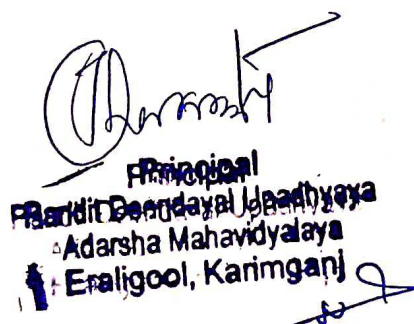 Principal
Pandit Deendayal Upadhyaya
Adarsha Mahavidyalaya
Eraligool, Karimganj